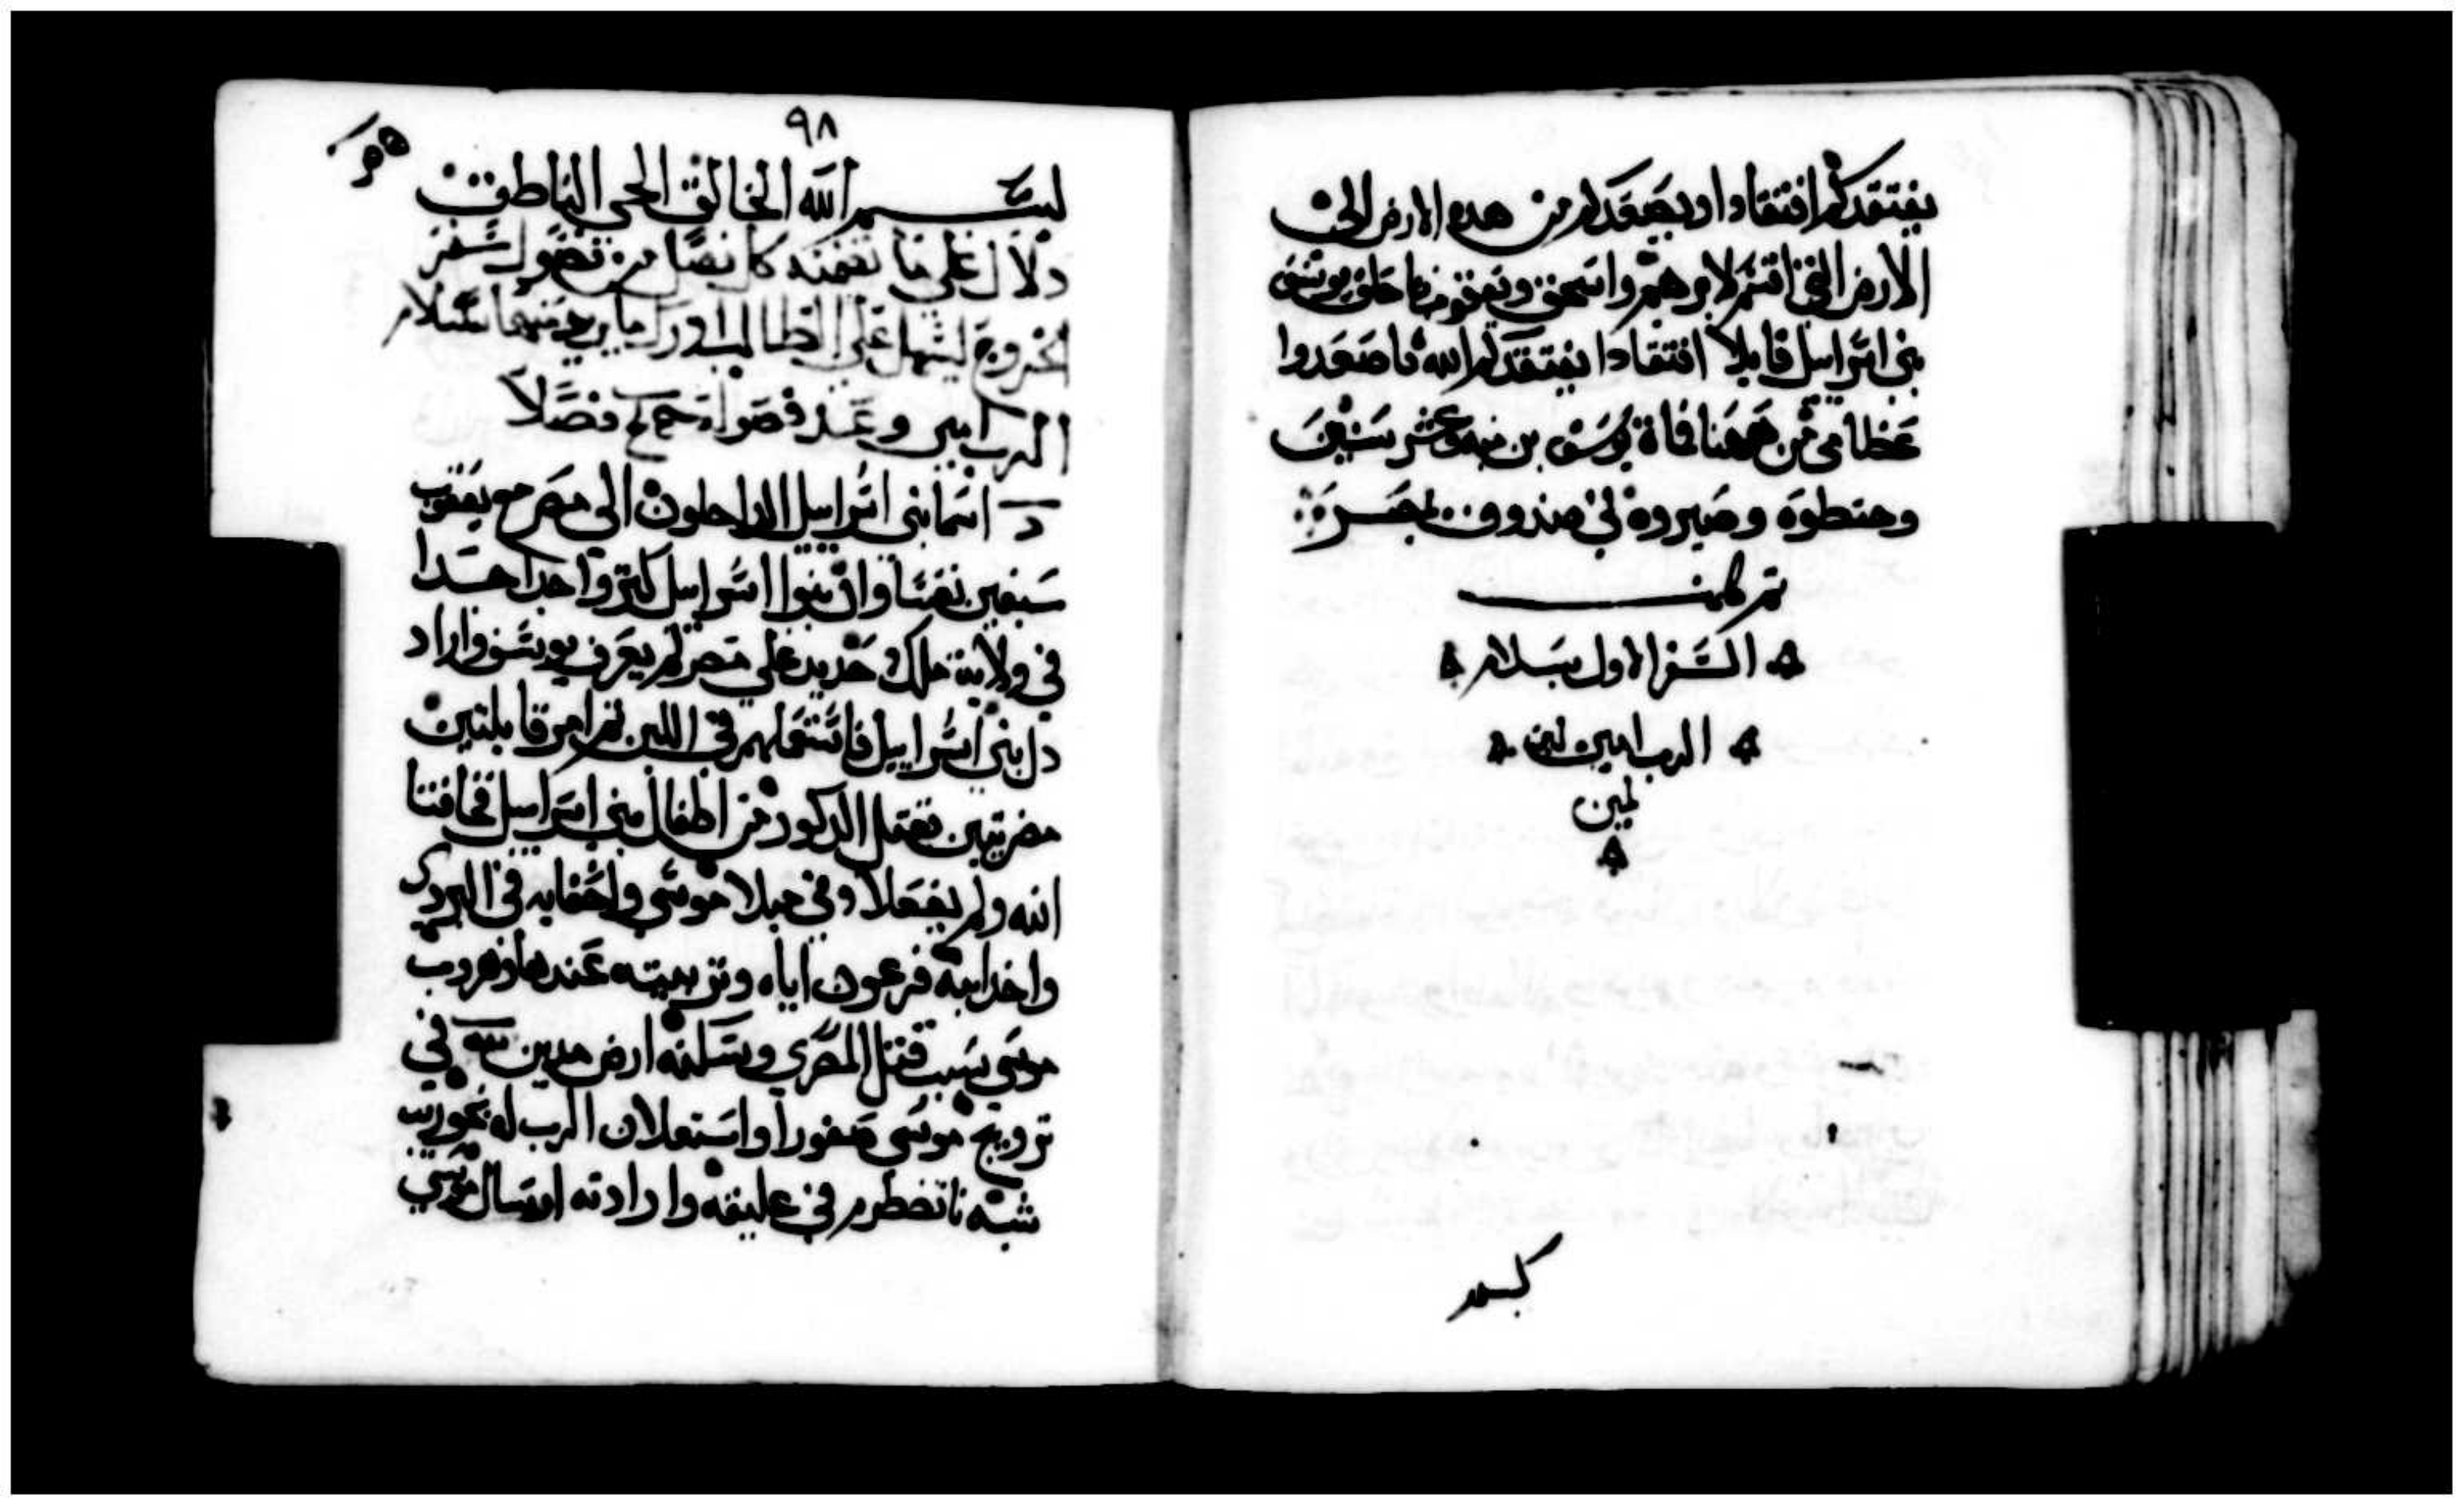 يفتقدكم افتقادا ويصعدكم من هده الارض الى
الارض التى اقسم لابرهيم واسحق ويعقوب فاحلف يوسف
بنى اسراييل قايلا افتقادا يفتقدكم الله فاصعدوا
عظامى من ههنا فمات يوسف بن ميه وعشر سنين
وحنطوه وصيروه فى صندوق بمصر
تم وكمل
السفر الاول بسلام
الرب امين
امين
٩٨
بسم الله الخالق الحى الناطق
دلال على ما تضمنه كل فصل من فصول سفر
الخروج ليسهل على الطالب ادراك ما يريد منهما بسلام
الرب امين وعدد فصوله فصلا
اسما بنى اسراييل الداخلون الى مصر مع يعقوب
سبعين نفسا وان بنوا اسراييل كثروا جدا جدا
فى ولاية ملك جديد على مصر لم يعرف يوسف واراد
دل بنى اسراييل فاستعملهم فى اللبن ثم امر قابلتين
مصريتين بقتل الدكور من اطفال بنى اسراييل فخافتا
الله ولم يفعلا وفى ميلاد موسى واخفايه فى البردى
واخد ابنة فرعون اياه وتربيته عندها وهروب
موسى بسبب قتل المصرى وسكنه ارض مدين فى
تزويج موسى صفورا واستعلان الرب له بحوريب
شبه نار تضطرم فى عليقه وارادته ارسال موسى